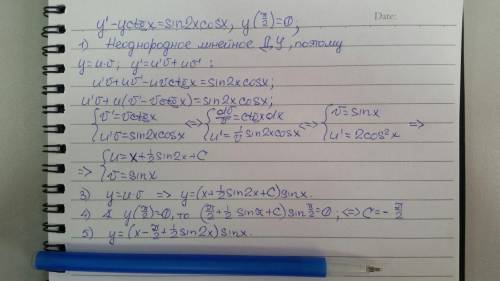 Date:
y' - yctgx = sin2xcosx, y(π/2) = 0;
1) Неоднородное линейное ДУ, поэтому
y = u·v, y' = u'v + uv' :
u'v + uv' - uvctgx = sin2xcosx;
u'v + u(v' - vctgx) = sin2xcosx;
{v' = vctgx <=> {dv/v = ctgxdx <=> {v = sinx
{u'v = sin2xcosx {u' = 1/v sin2xcosx {u' = 2cos²x =>
=> {u = x + 1/2 sin2x + C
{v = sinx
3) y = u·v => y = (x + 1/2 sin2x + C) sinx.
4) y(π/2) = 0, то (π/2 + 1/2 sinπ + C) sin π/2 = 0; <=> C = - π/2
5) y = (x - π/2 + 1/2 sin2x) sinx.